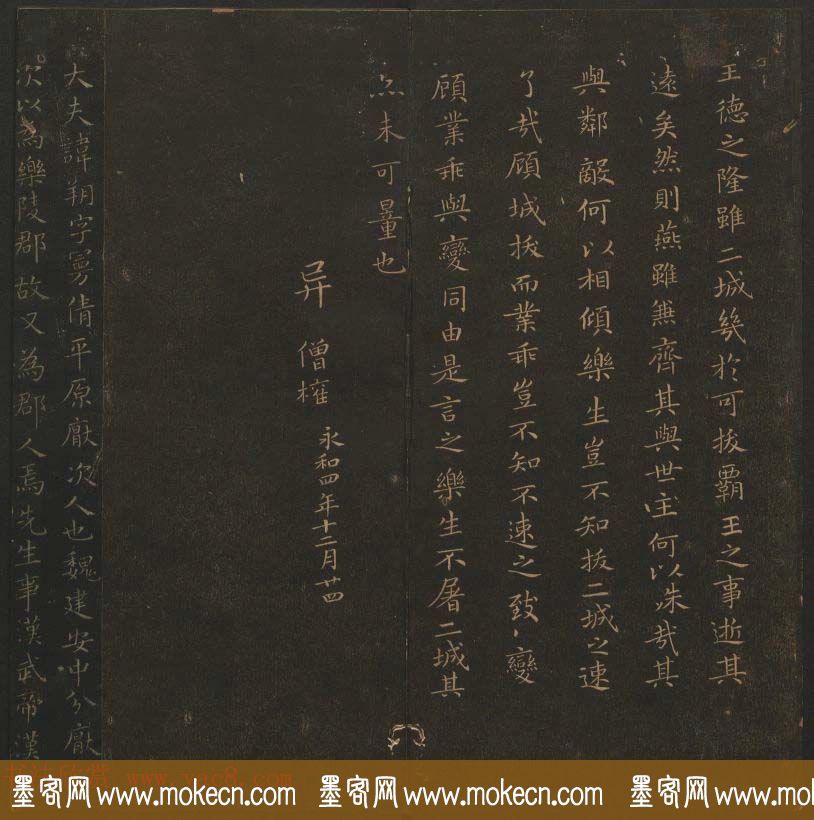 王德之隆雖二城幾於可拔霸王之事逝其
遠矣然則燕雖兼齊其與世主何以殊哉其
與鄰敵何以相傾樂生豈不知拔二城之速
了哉顧城拔而業乖豈不知不速之致變
顧業乖與變同由是言之樂生不屠二城其
亦未可量也
异
僧權
永和四年十二月廿四
大夫諱朔字曼倩平原厭次人也魏建安中分厭
次以為樂陵郡故又為郡人焉先生事漢武帝漢
www.yac8.com
墨客网 www.mokecn.com 墨客网 www.mokecn.com 墨客网 www.mokecn.com